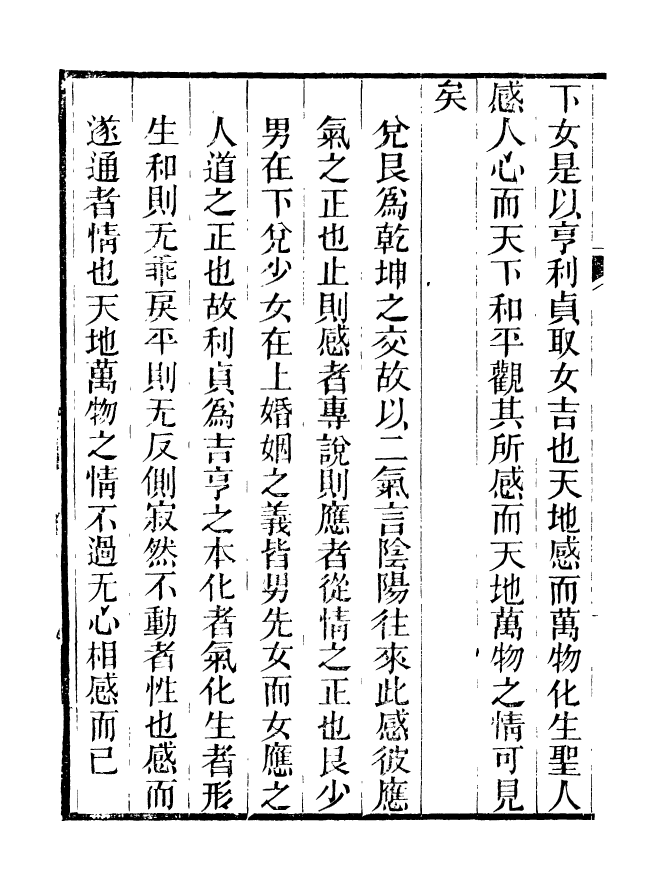 下女是以亨利貞取女吉也天地感而萬物化生聖人
感人心而天下和平觀其所感而天地萬物之情可見
矣
兌艮爲乾坤之交故以二氣言陰陽往來此感彼應
氣之正也止則感者專說則應者從情之正也艮少
男在下兌少女在上婚姻之義皆男先女而女應之
人道之正也故利貞爲吉亨之本化者氣化生者形
生和則无乖戾平則无反側寂然不動者性也感而
遂通者情也天地萬物之情不過无心相感而已